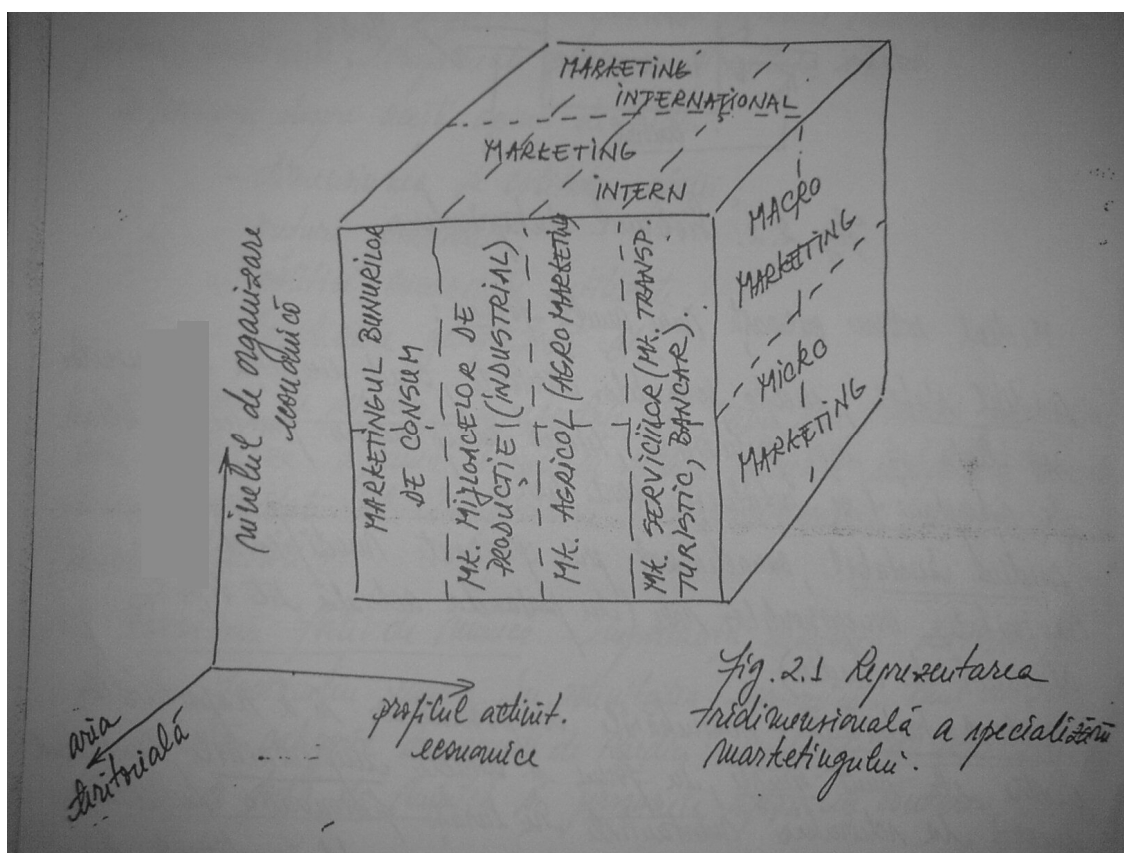 MARKETING
INTERNAŢIONAL
MARKETING
INTERN
MACRO
MARKETING
MICRO
MARKETING
MARKETINGUL BUNURILOR
DE CONSUM
Mk. MIJLOACELOR DE
PRODUCŢIE (INDUSTRIAL)
Mk. AGRICOL (AGROMARKETING
Mk. SERVICIILOR (Mk. TRANSP.
TURISTIC, BANCAR).
nivelul de organizare
economică
profilul activit.
economice
aria
teritorială
Fig. 2.1 Reprezentarea
tridimensională a specializării
marketingului.